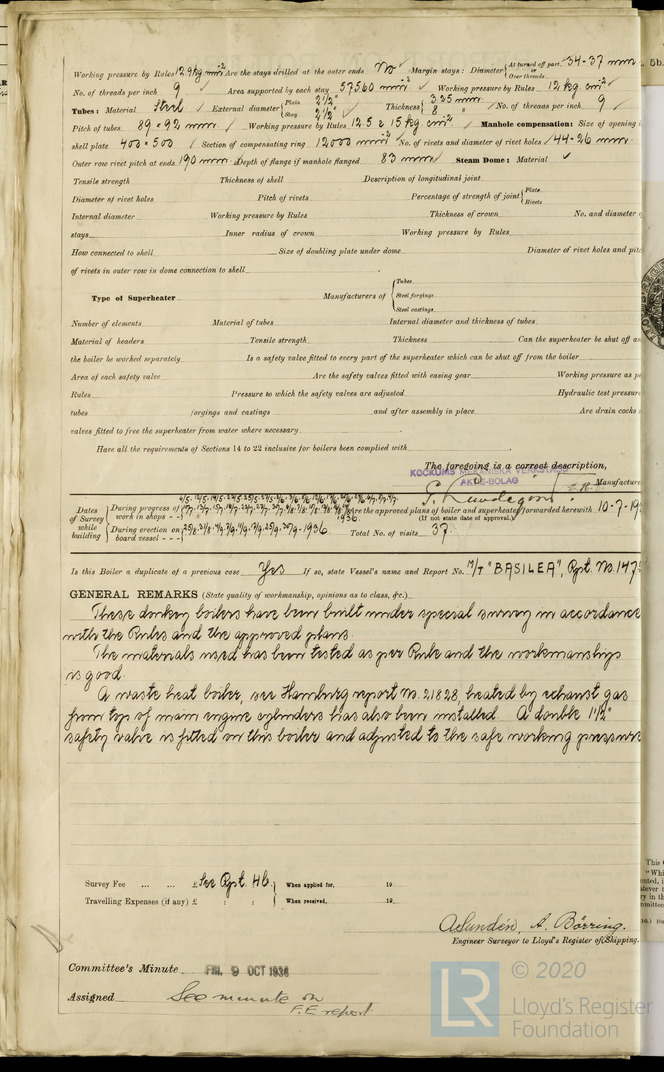 Working pressure by Rules 12.9 kg/cm² Are the stays drilled at the outer ends No ✓ Margin stays: Diameter { At turned off part, or Over threads 34-37 mm
No. of threads per inch 9 ✓ Area supported by each stay 57560 mm² ✓ Working pressure by Rules 12 kg/cm² ✓
Tubes: Material Steel ✓ External diameter { Plain 2½" Stay 2½" ✓ Thickness { 3.25 mm 8 " ✓ No. of threads per inch 9 ✓
Pitch of tubes 89 × 92 mm ✓ Working pressure by Rules 12.5 & 15 kg/cm² ✓ Manhole compensation: Size of opening
shell plate 400 × 500 ✓ Section of compensating ring 12000 mm² No. of rivets and diameter of rivet holes 44-26 mm
Outer row rivet pitch at ends 190 mm Depth of flange if manhole flanged 83 mm ✓ Steam Dome: Material ✓
Tensile strength Thickness of shell Description of longitudinal joint
Diameter of rivet holes Pitch of rivets Percentage of strength of joint { Plate Rivets
Internal diameter Working pressure by Rules Thickness of crown No. and diameter
stays Inner radius of crown Working pressure by Rules
How connected to shell Size of doubling plate under dome Diameter of rivet holes and pitc
of rivets in outer row in dome connection to shell
Type of Superheater Manufacturers of { Tubes Steel forgings Steel castings
Number of elements Material of tubes Internal diameter and thickness of tubes
Material of headers Tensile strength Thickness Can the superheater be shut off an
the boiler be worked separately Is a safety valve fitted to every part of the superheater which can be shut off from the boiler
Area of each safety valve Are the safety valves fitted with easing gear Working pressure as pe
Rules Pressure to which the safety valves are adjusted Hydraulic test pressure
tubes forgings and castings and after assembly in place Are drain cocks
valves fitted to free the superheater from water where necessary
Have all the requirements of Sections 14 to 22 inclusive for boilers been complied with
The foregoing is a correct description,
KOCKUMS MEKANISKA VERKSTADS
AKTIE-BOLAG
Manufacture
Dates of Survey while building { During progress of work in shops - - 1936 Are the approved plans of boiler and superheater forwarded herewith 10-7-19
(If not state date of approval.)
During erection on board vessel - - - 1936 Total No. of visits 37
Is this Boiler a duplicate of a previous case Yes If so, state Vessel's name and Report No. M/T "BASILEA", Rpt. No. 147
GENERAL REMARKS (State quality of workmanship, opinions as to class, &c.)
These donkey boilers have been built under special survey in accordance
with the Rules and the approved plans.
The materials used has been tested as per Rule and the workmanships
is good.
A waste heat boiler, see Hamburg report No. 21828, heated by exhaust gas
from top of main engine cylinders has also been installed. A double 1½"
safety valve is fitted on this boiler and adjusted to the safe working pressure
Survey Fee ... ... £ See Rpt. 4b. When applied for, 19
Travelling Expenses (if any) £ : : When received, 19
A. Lundén, A. Börring.
Engineer Surveyor to Lloyd's Register of Shipping.
Committee's Minute FRI. 9 OCT 1936
Assigned See minute on
F.E. report
© 2020
LR
Lloyd's Register
Foundation